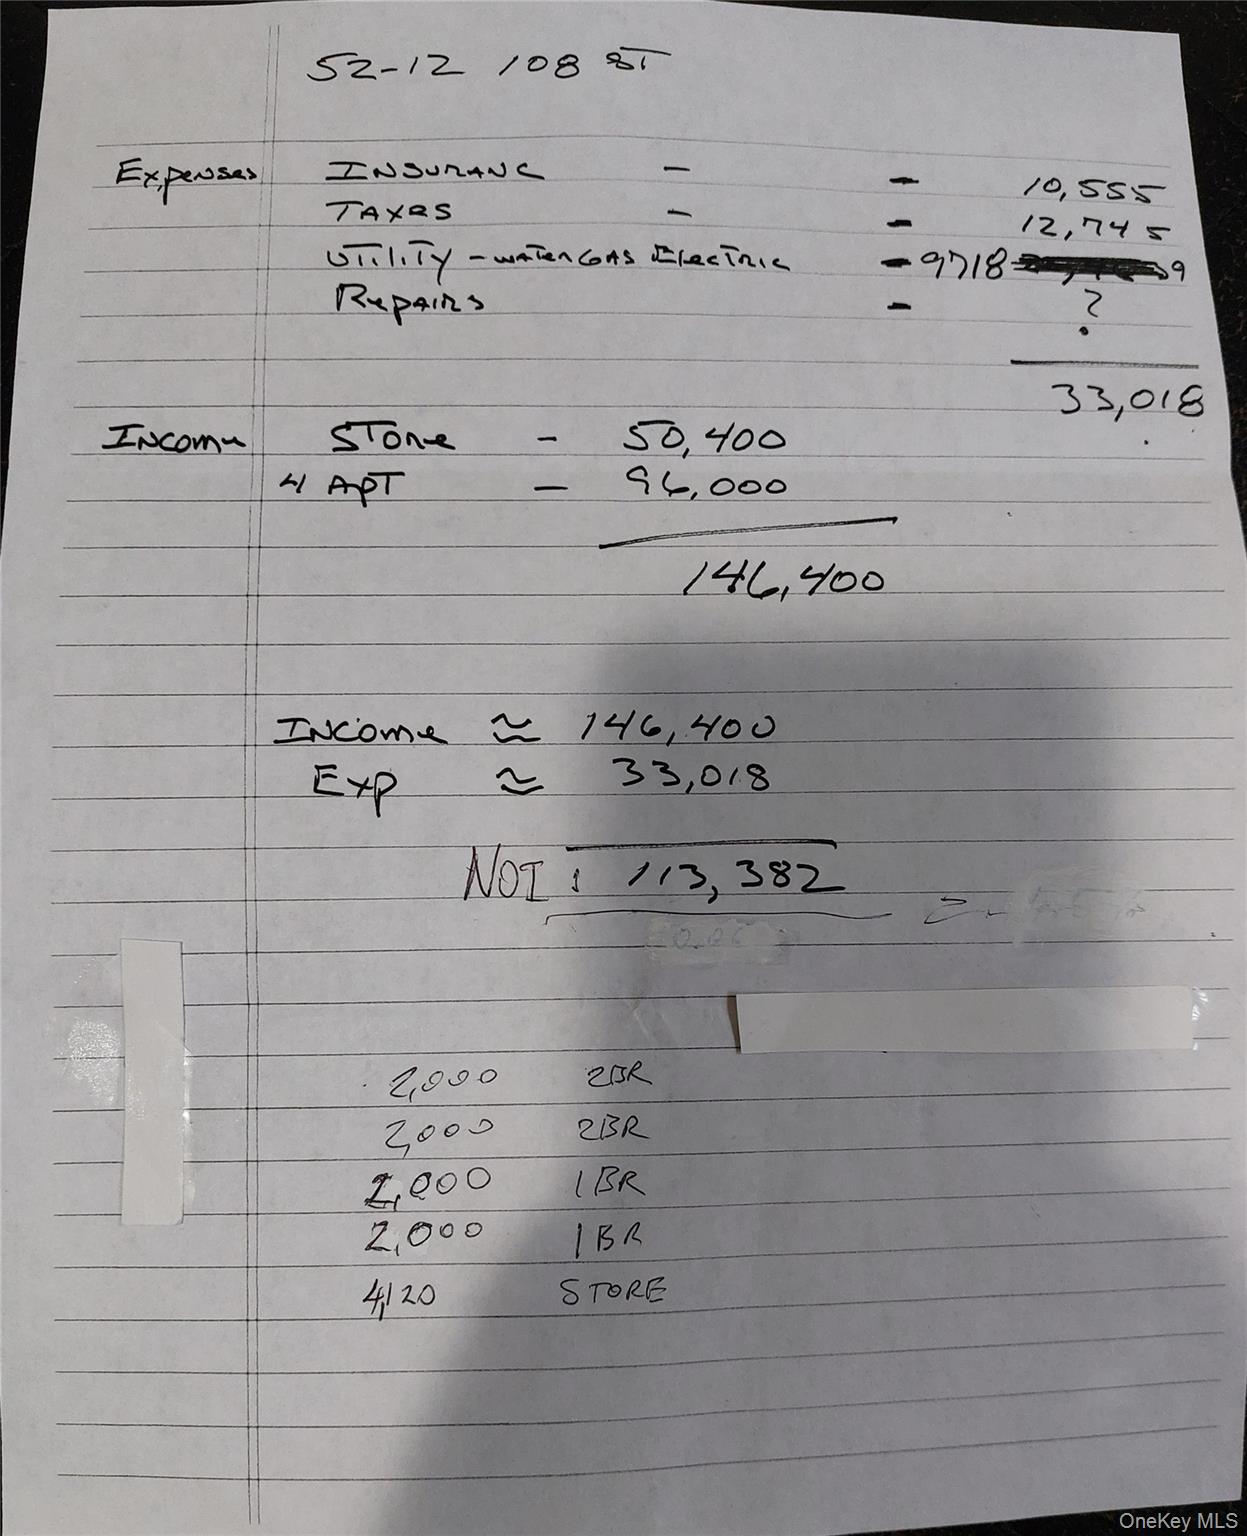 52-12 108 ST
Expenses INSURANC - - 10,555
TAXES - - 12,745
UTILITY - WATER GAS Electric - 9718
Repairs - ?
33,018
Income STORE - 50,400
4 APT - 96,000
146,400
Income ≈ 146,400
Exp ≈ 33,018
NOI : 113,382
2,000 2BR
2,000 2BR
2,000 1BR
2,000 1BR
4,120 STORE
OneKey MLS